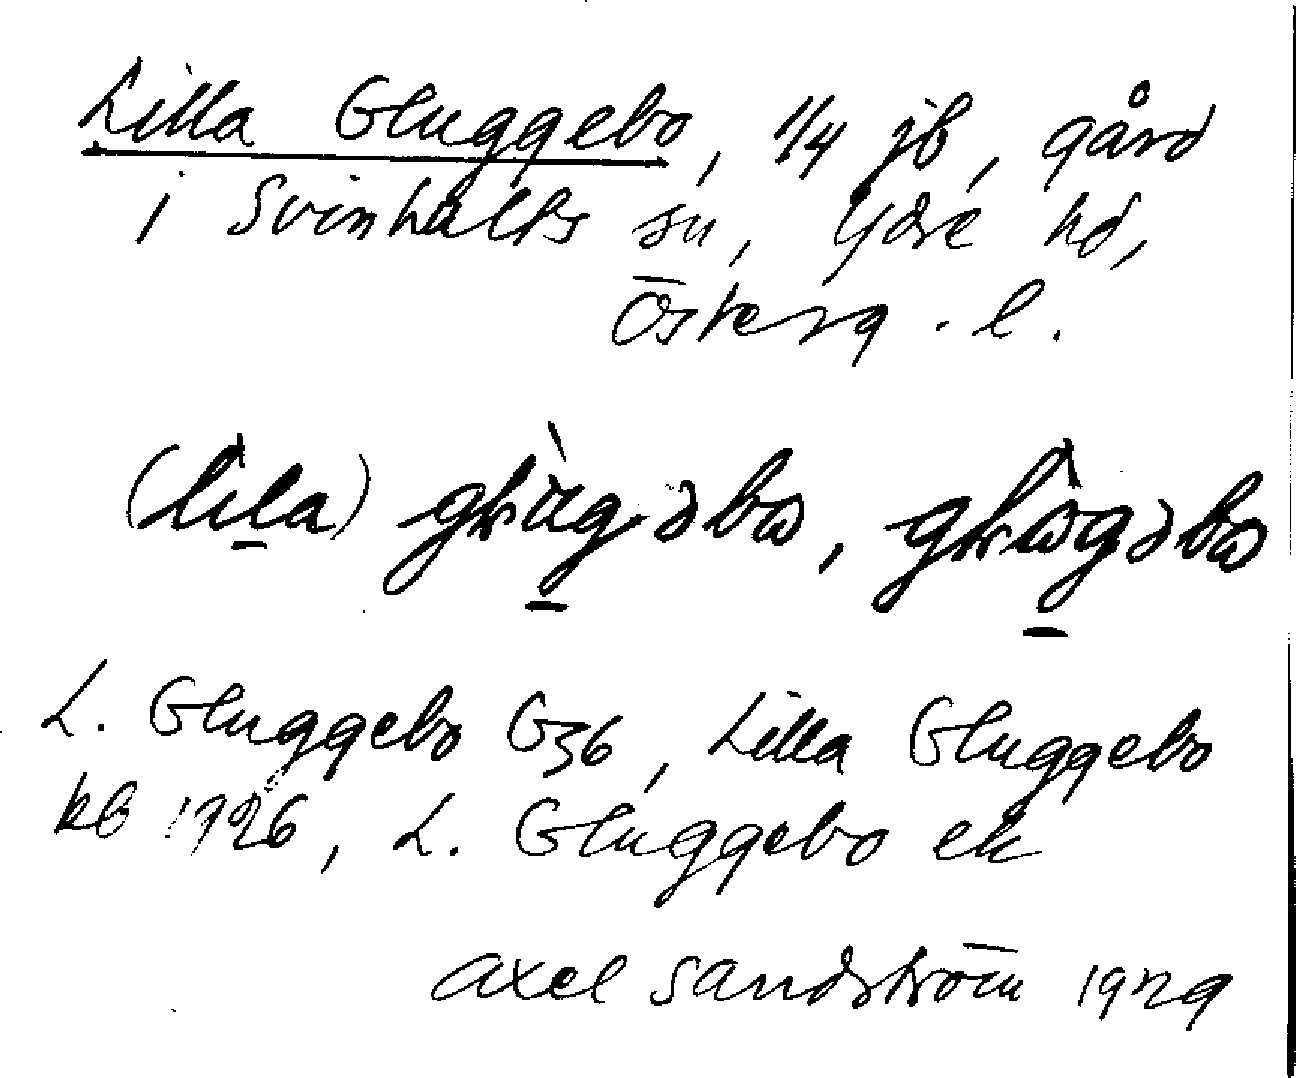 Lilla Gluggebo, 1/4 jb, gård
i Svinhults sn, Ydre hd,
Österg. l.
(lila)
L. Gluggebo G36, Lilla Gluggebo
kb 1726, L. Gluggebo ek
Axel Sandström 1929